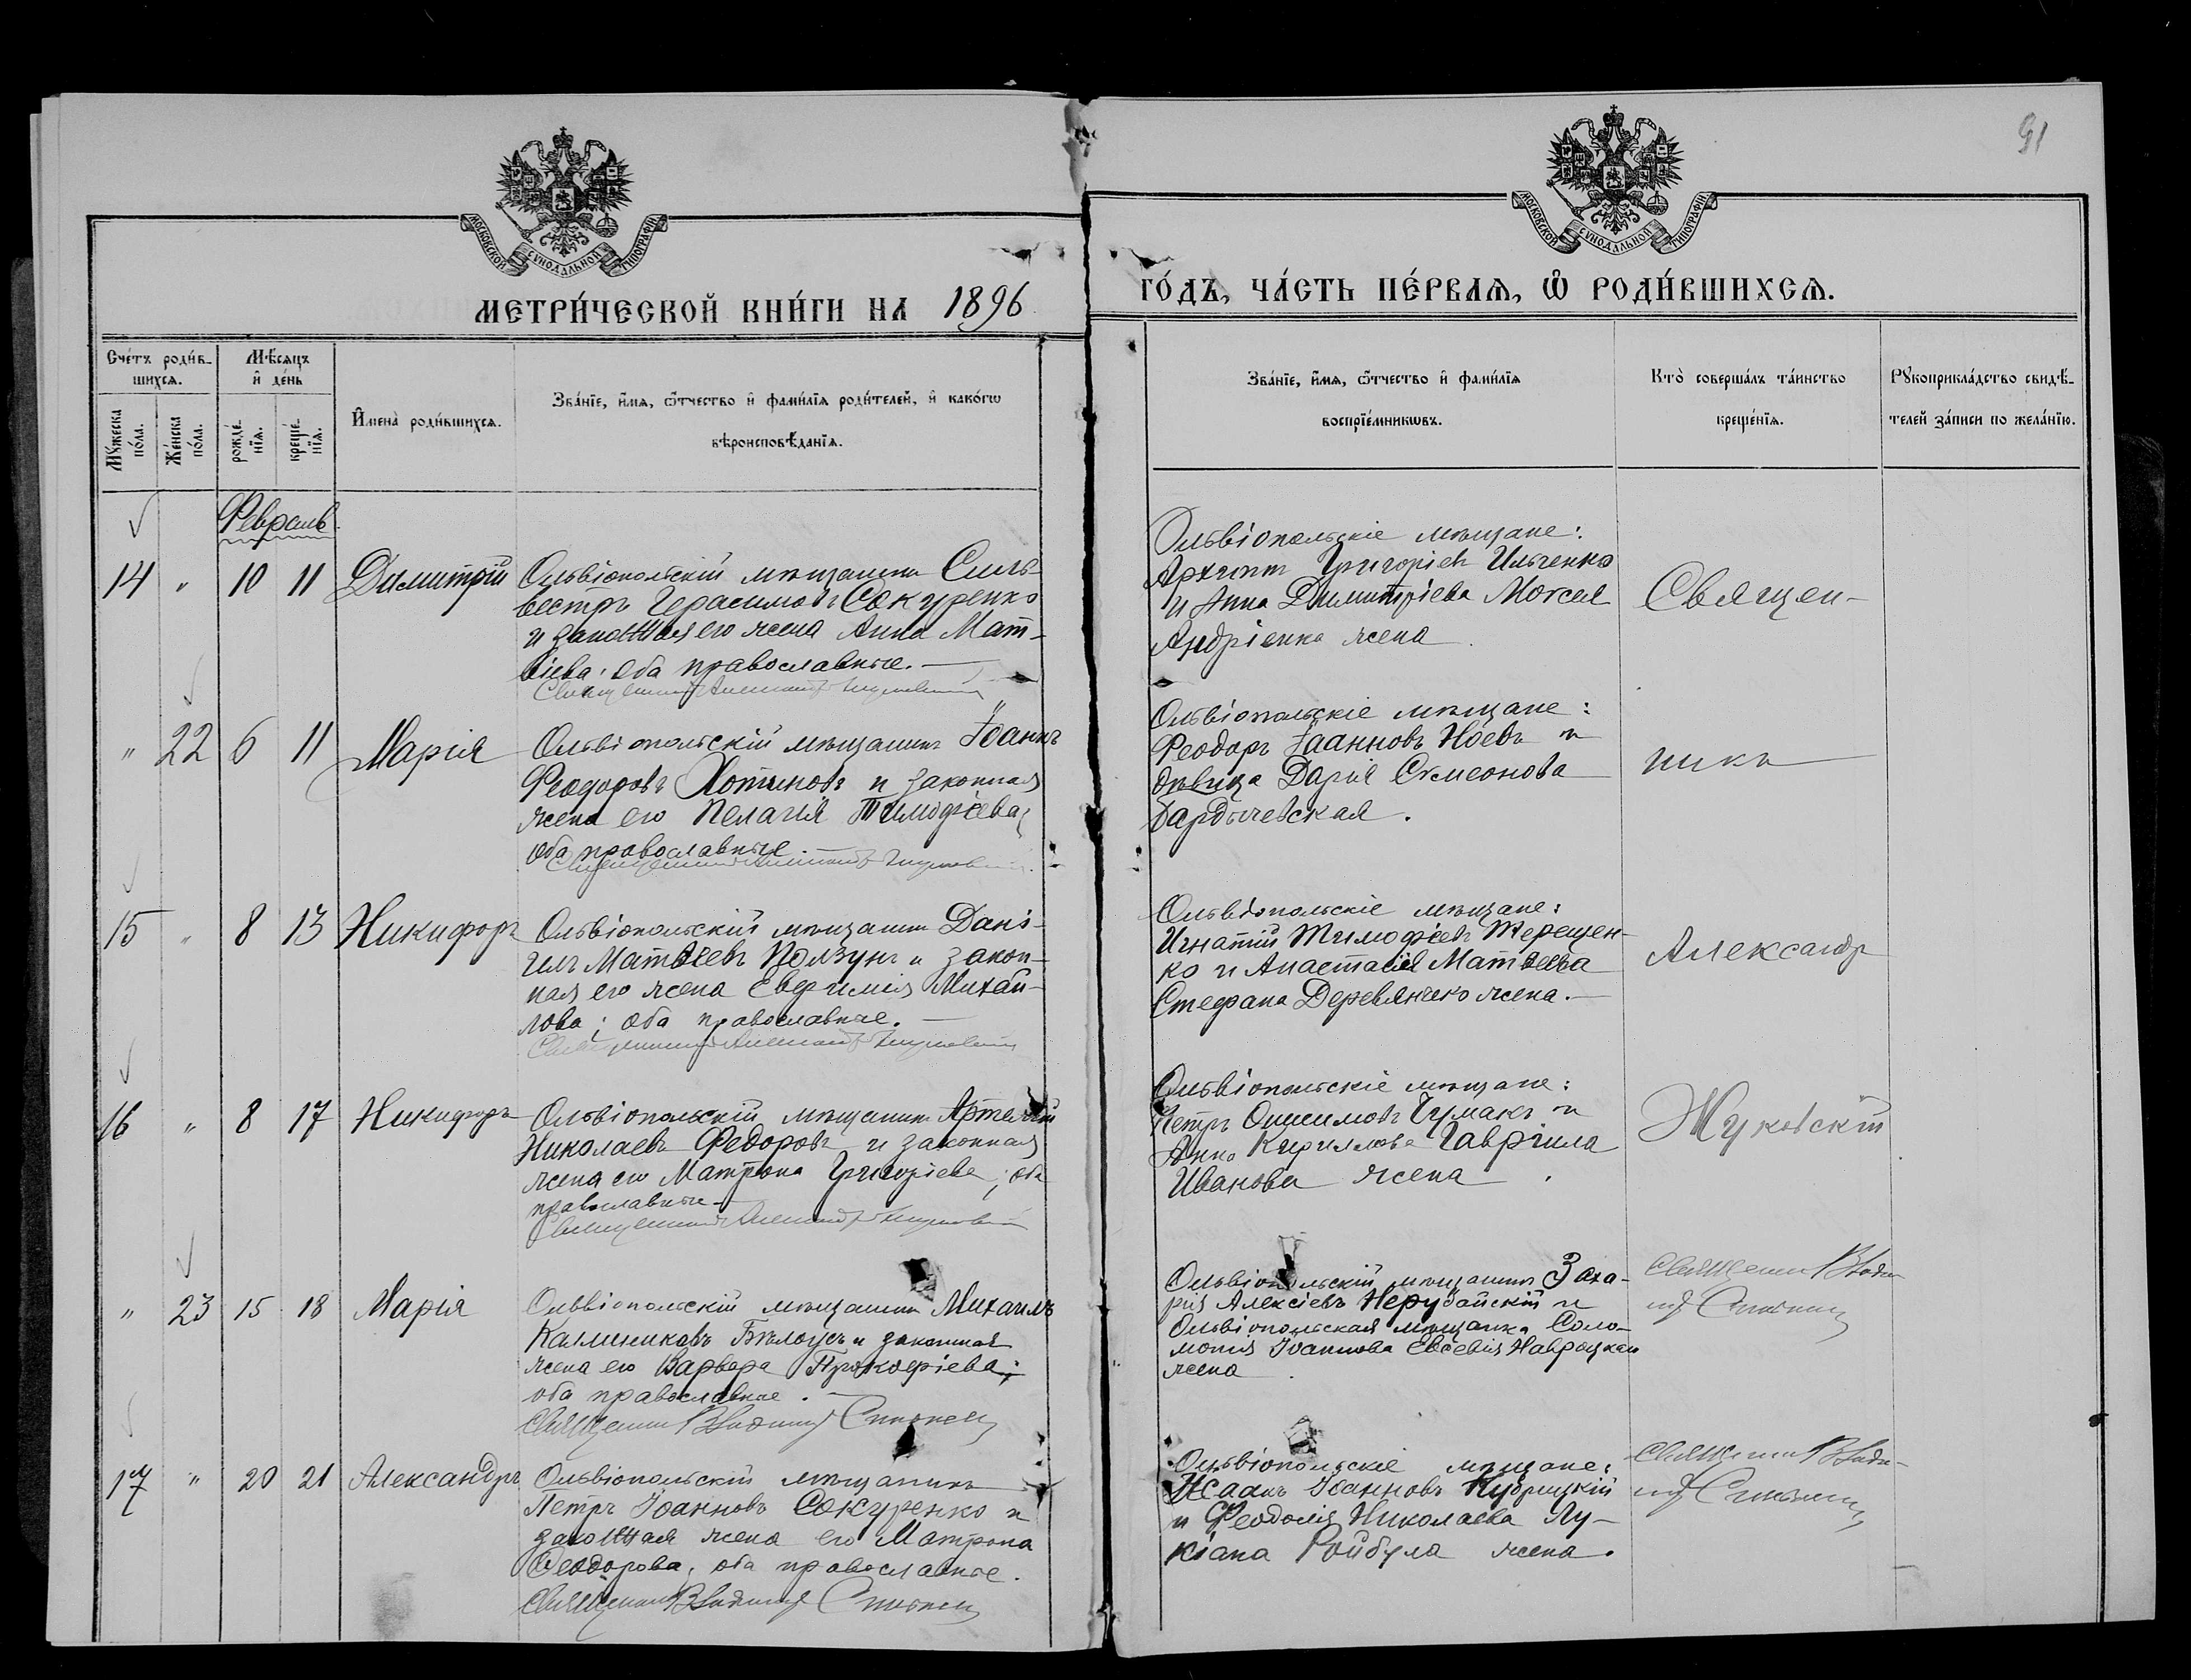 91
МОСКОВСКОЙ СѴНОДАЛЬНОЙ ТИПОГРАФІИ
МОСКОВСКОЙ СѴНОДАЛЬНОЙ ТИПОГРАФІИ
МЕТРИ́ЧЕСКОЙ КНИ́ГИ НА 1896
ГО́ДЪ, ЧА́СТЬ ПЕ́РВАЯ, Ѡ РОДИ́ВШИХСЯ.
Сче́тъ роди́в-
шихся.
Мѣ́сяцъ
и де́нь
Мꙋ́жеска
по́ла.
Же́нска
по́ла.
рожде́-
нїя.
креще́-
нїя.
Имена̀ роди́вшихся.
Зва́нїе, и́мя, ѻ́тчество и фами́лїя роди́телей, и како́гѡ
вѣроисповѣ́данїя.
Зва́нїе, и́мя, ѻ́тчество и фами́лїя
воспрїе́мникѡвъ.
Кто̀ соверша́лъ та́инство
креще́нїя.
Рꙋкоприкла́дство свидѣ́-
телей за́писи по жела́нїю.
Февраль
14 " 10 11 Димитрій
Ольвіопольскій мѣщанинъ Силь-
вестръ Герасимовъ Сокуренко
и законная его жена Анна Мат-
віева; оба православные.
Ольвіопольскіе мѣщане:
Архипъ Григоріевъ Ильченко
и Анна Димитріева Моѵсея
Андріенка жена
Священ-
" 22 6 11 Марія
Ольвіопольскій мѣщанинъ Іоаннъ
Феодоровъ Хотиновъ и законная
жена его Пелагія Тимофіева;
оба православные
Ольвіопольскіе мѣщане:
Феодоръ Іоанновъ Ноевъ и
дѣвица Дарія Сѵмеонова
Бардычевская.
никъ
15 " 8 13 Никифоръ
Ольвіопольскій мѣщанинъ Дані-
илъ Матвѣевъ Ползунъ и закон-
ная его жена Евфимія Михай-
лова; оба православные.
Ольвіопольскіе мѣщане:
Игнатій Тимофіевъ Терещен-
ко и Анастасія Матвѣева
Стефана Деревянченко жена.
Александръ
16 " 8 17 Никифоръ
Ольвіопольскій мѣщанинъ Артемій
Николаевъ Федоровъ и законная
жена его Матрона Григоріева; оба
православные
Ольвіопольскіе мѣщане:
Петръ Онисимовъ Чумакъ и
Анна Кириллова Гавріила
Иванова жена.
Жуковскій
" 23 15 18 Марія
Ольвіопольскій мѣщанинъ Михаилъ
Каллиниковъ Бѣлоусъ и законная
жена его Варвара Прокофіева;
оба православные.
Ольвіопольскій мѣщанинъ Заха-
рія Алексіевъ Нерубайскій и
Ольвіопольская мѣщанка Соло-
монія Іоаннова Евсевія Навроцкаго
жена.
17 " 20 21 Александръ
Ольвіопольскій мѣщанинъ
Петръ Іоанновъ Сокуренко и
законная жена его Матрона
Феодорова; оба православные.
Ольвіопольскіе мѣщане:
Исаакъ Іоанновъ Кубрицкій
и Феодосія Николаева Лу-
кіана Ройбула жена.